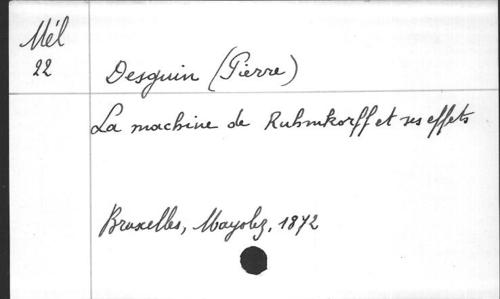 Mél
22
Desguin (Pierre)
La machine de Ruhmkorff et ses effets
Bruxelles, Mayolez, 1872